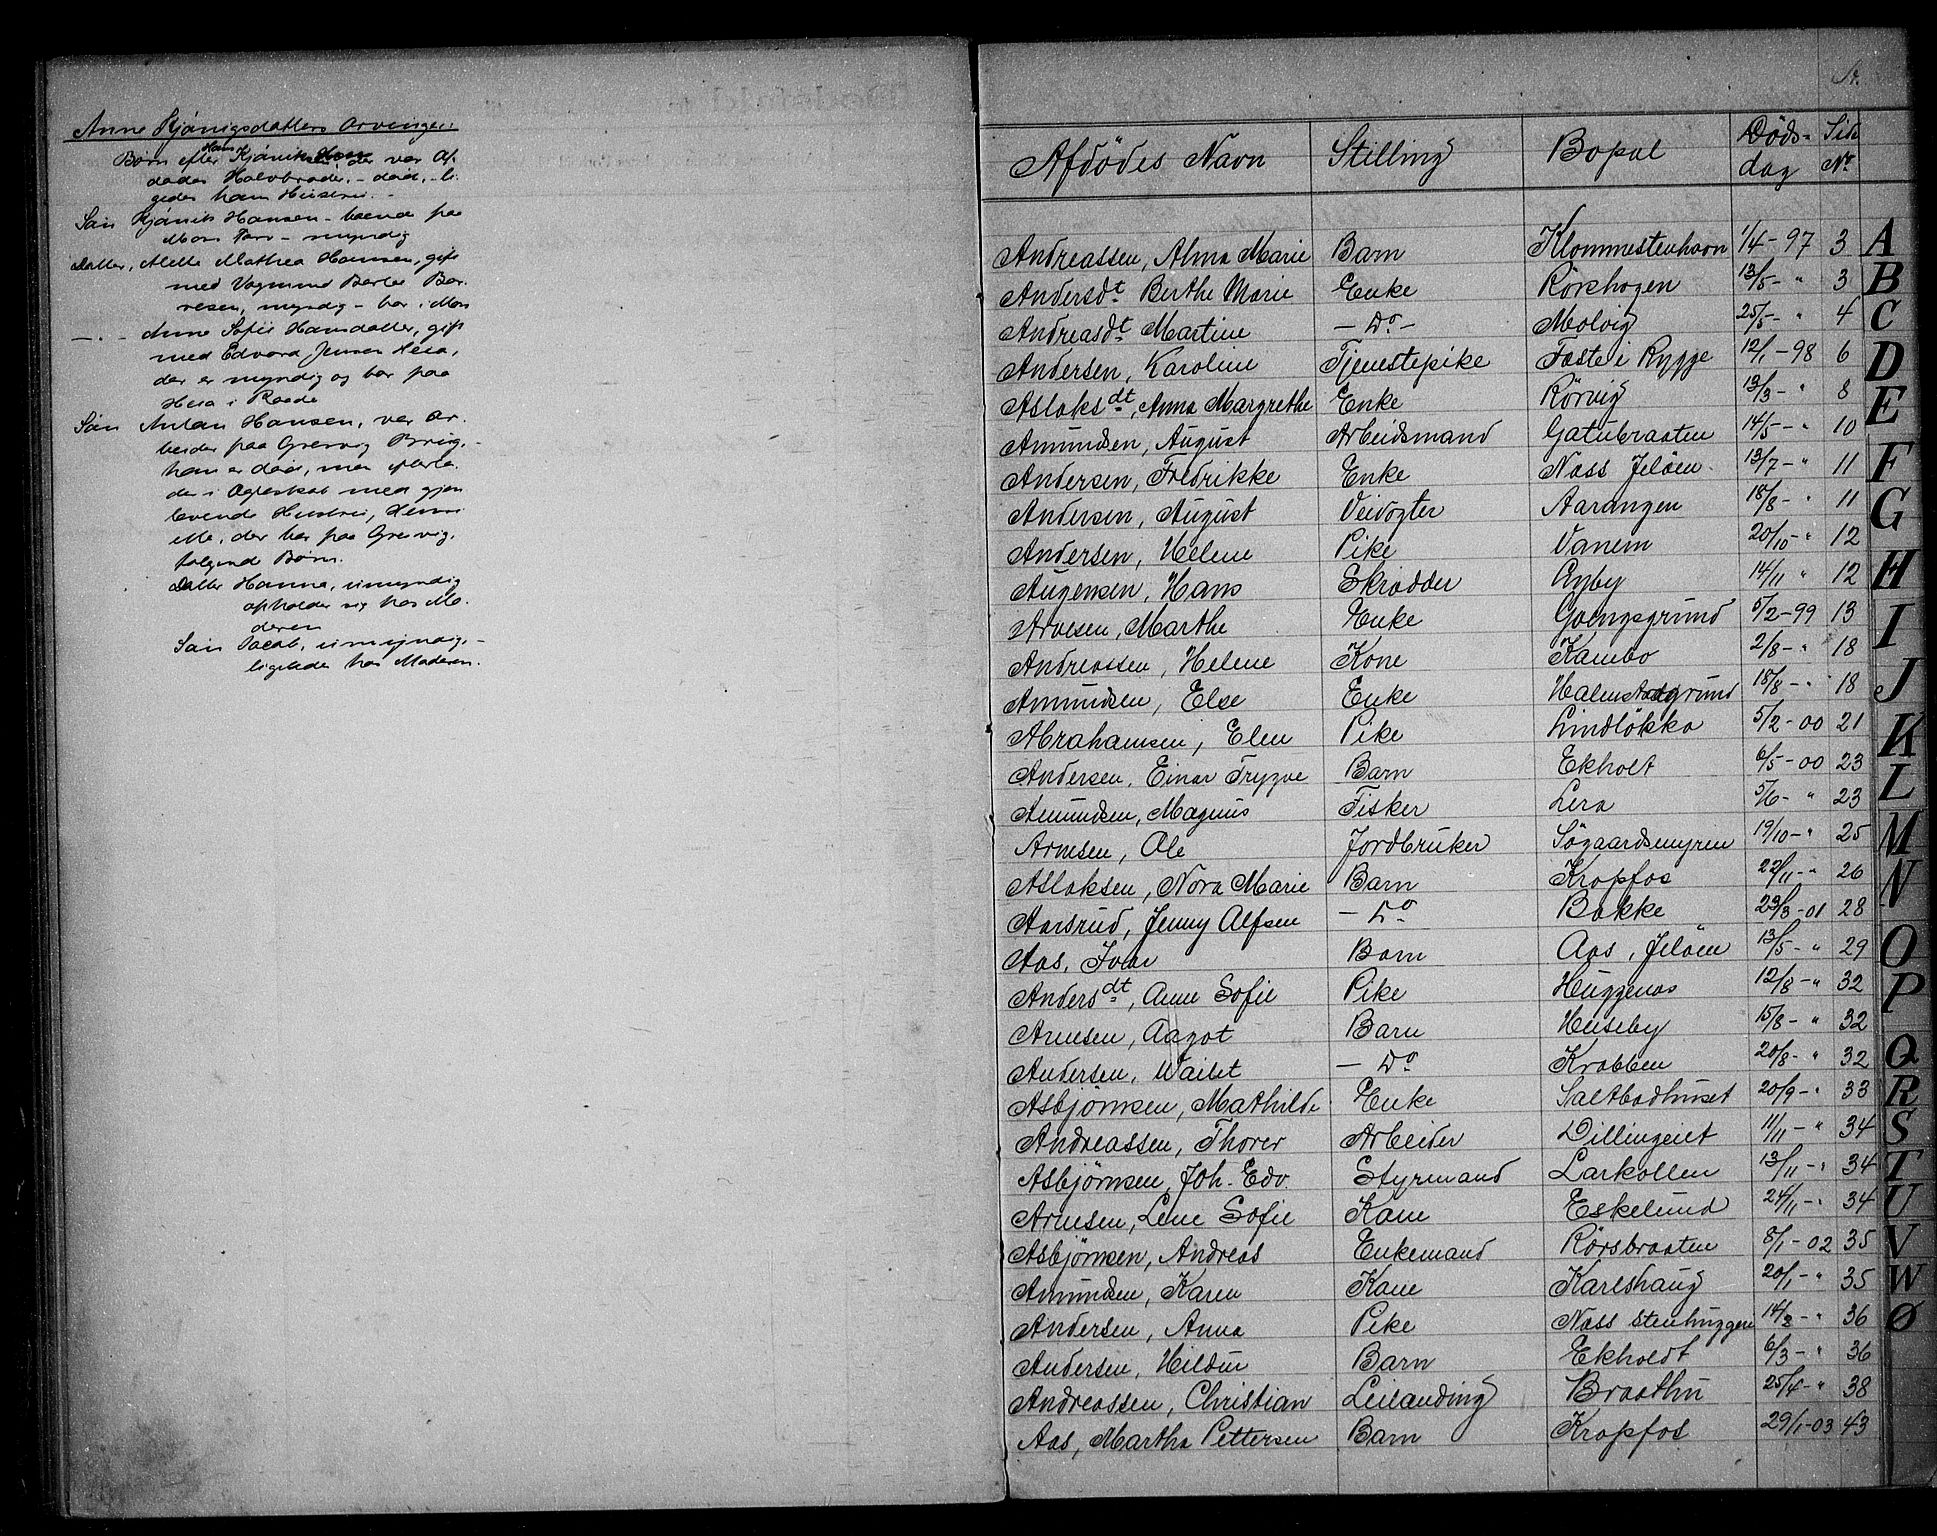 Anne Kjönigsdatters Arvinger:
Børn efter Hans Kjöniksen der var Af-
dødes Halvbroder, - död, - li-
gedes hans Hustru. -
Sön Kjönik Hansen - boende paa
Mos - myndig
Datter, Mathea Hansen, gift
med Vognmand Bertel Bor-
resen, myndig - bor i Mos
- " - Anne Sofie Hansdatter, gift
med Edvard Jensen Heia,
der er myndig og bor paa
Heia i Raade
Sön Anton Hansen, var Ar-
beider paa Gresvig Brug, -
han er död, men efterla-
der i Ægteskab med gjen-
levende Hustru,
der bor paa Gresvig,
følgend Børn.
Datter Hanna, umyndig
opholder sig hos Mo-
deren
Sön Jacob, umyndig, -
ligeledes hos Moderen.
Afdödes Navn Stilling Bopæl Döds- dag Side No
Andreassen, Alma Marie Barn Klommestenhavn 1/4-97 3 A
Andersdt Berthe Marie Enke Rörhogen 13/5- " 3 B
Andreasdt Martine - Do - Molvig 25/5- " 4 C
Andersen, Karoline Tjenestepike Faste i Rygge 12/1-98 6 D
Aslaksdt, Anna Margrethe Enke Rörvig 13/3- " 8 E
Amundsen, August Arbeidsmand Gatubraaten 14/5- " 10
Andersen, Fredrikke Enke Næss Jelöen 13/7- " 11 F
Andersen, August Veivogter Aarangen 18/8- " 11 G
Andersen, Helene Pike Vanem 20/10- " 12
Augensen, Hans Skrædder Eyby 14/11 " 12 H
Arvesen, Marthe Enke Goengsgrund 5/2-99 13 I
Andreassen, Helene Kone Kambo 2/8- " 18
Amundsen, Else Enke Halmstadgrund 18/8- " 18 J
Abrahamsen, Elen Pike Lindlökka 5/2-00 21 K
Andersen, Einar Trygve Barn Ekholt 6/5-00 23 L
Amundsen, Magnus Fisker Lera 5/6- " 23
Arnesen, Ole Jordbruker Sögaardsmyren 19/10- " 25 M
Aslaksen, Nora Marie Barn Kropfos 22/11- " 26 N
Aarsrud, Jenny Alfsen - Do Bakke 23/3-01 28
Aas, Ivar Barn Aas, Jelöen 13/5- " 29 O
Andersdt, Anne Sofie Pike Huggenas 12/8- " 32 P
Arnesen, Aagot Barn Huseby 15/8- " 32
Andersen, Wailet - Do Krabben 20/8- " 32 Q
Asbjörnsen, Mathilde Enke Saltbadhuset 20/9- " 33 R
Andreassen, Thorer Arbeider Dillingeiet 11/11- " 34 S
Asbjörnsen, Joh. Edv. Styrmand Larkollen 13/11- " 34 T
Arnesen, Lene Sofie Kone Eskelund 24/11- " 34 U
Asbjörnsen, Andreas Enkemand Rörsbraaten 8/1-02 35 V
Amundsen, Karen Kone Karlshaug 20/1- " 35 W
Andersen, Anna Pike Næss Stenhuggeri 14/2- " 36 Ø
Andersen, Hildur Barn Ekholdt 6/3- " 36
Andreassen, Christian Leilanding Braathu 25/4- " 38
Aas, Martha Pettersen Barn Kropfos 29/1-03 43